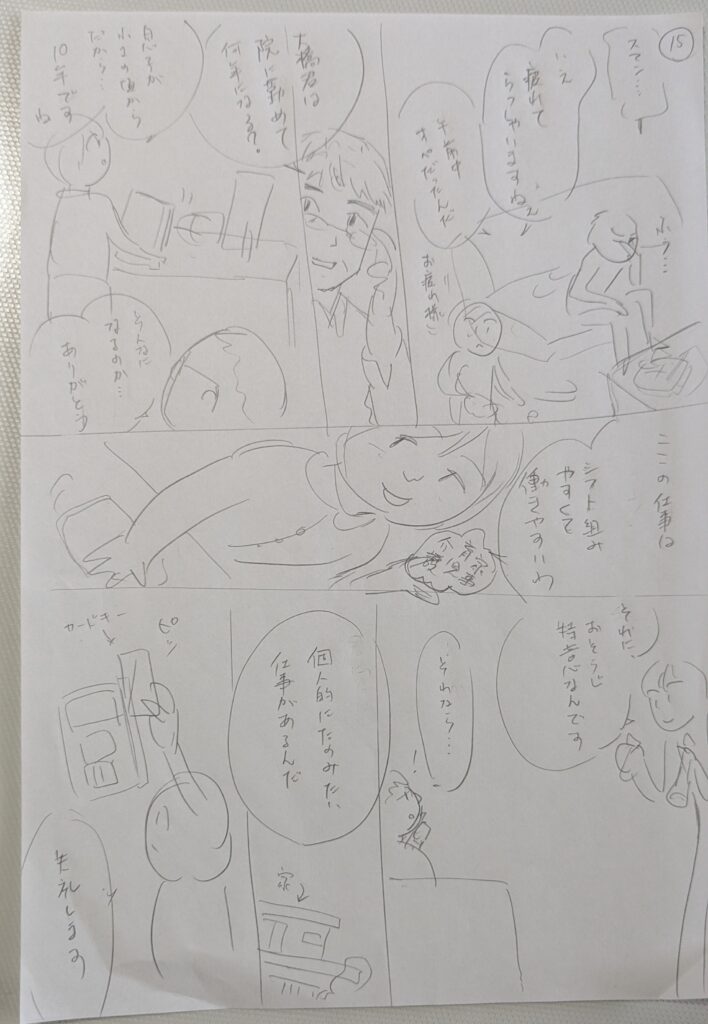 15
スマン…
いえ
疲れて
らっしゃいますねぇ
午前中
オペだったんだ
お疲れ様
ふう…
大橋君は
院に勤めて
何年になる?
息子が
小さの頃から
だから…
10年です
ね
そんなに
なるのか…
ありがとう
ここの仕事は
シフト組み
やすくて
働きやすいわ
家事
育児
介護
それに、
おそうじ
得意なんです
それなら…
!
個人的にたのみたい
仕事があるんだ
家
ピッ
カードキー
失礼します